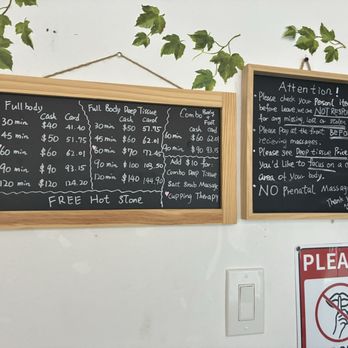 Fullbody
Cash Card
30min $40 41.40
45min $50 51.75
60min $60 62.01
90min $90 93.15
120min $120 124.20
Full Body Deep Tissue
Cash Card
30min $50 51.75
45min $60 62.01
60min $70 72.45
90min $100 103.50
120min $140 144.90
Combo Body + Foot
Cash Card
60min $60 62.01
90min $90 93.15
Add $10 for:
Combo Deep Tissue
Salt Scrub Massage
Cupping Therapy
FREE Hot Stone
Attention!
Please check your Personal
before leave, we are NOT
for any missing, lost or
Please Pay at the front BEFO
recieving massages.
Please see Deep tissue Price
You'd Like to focus on a
area of your body.
NO Prenatal Massa
Thank
PLEA